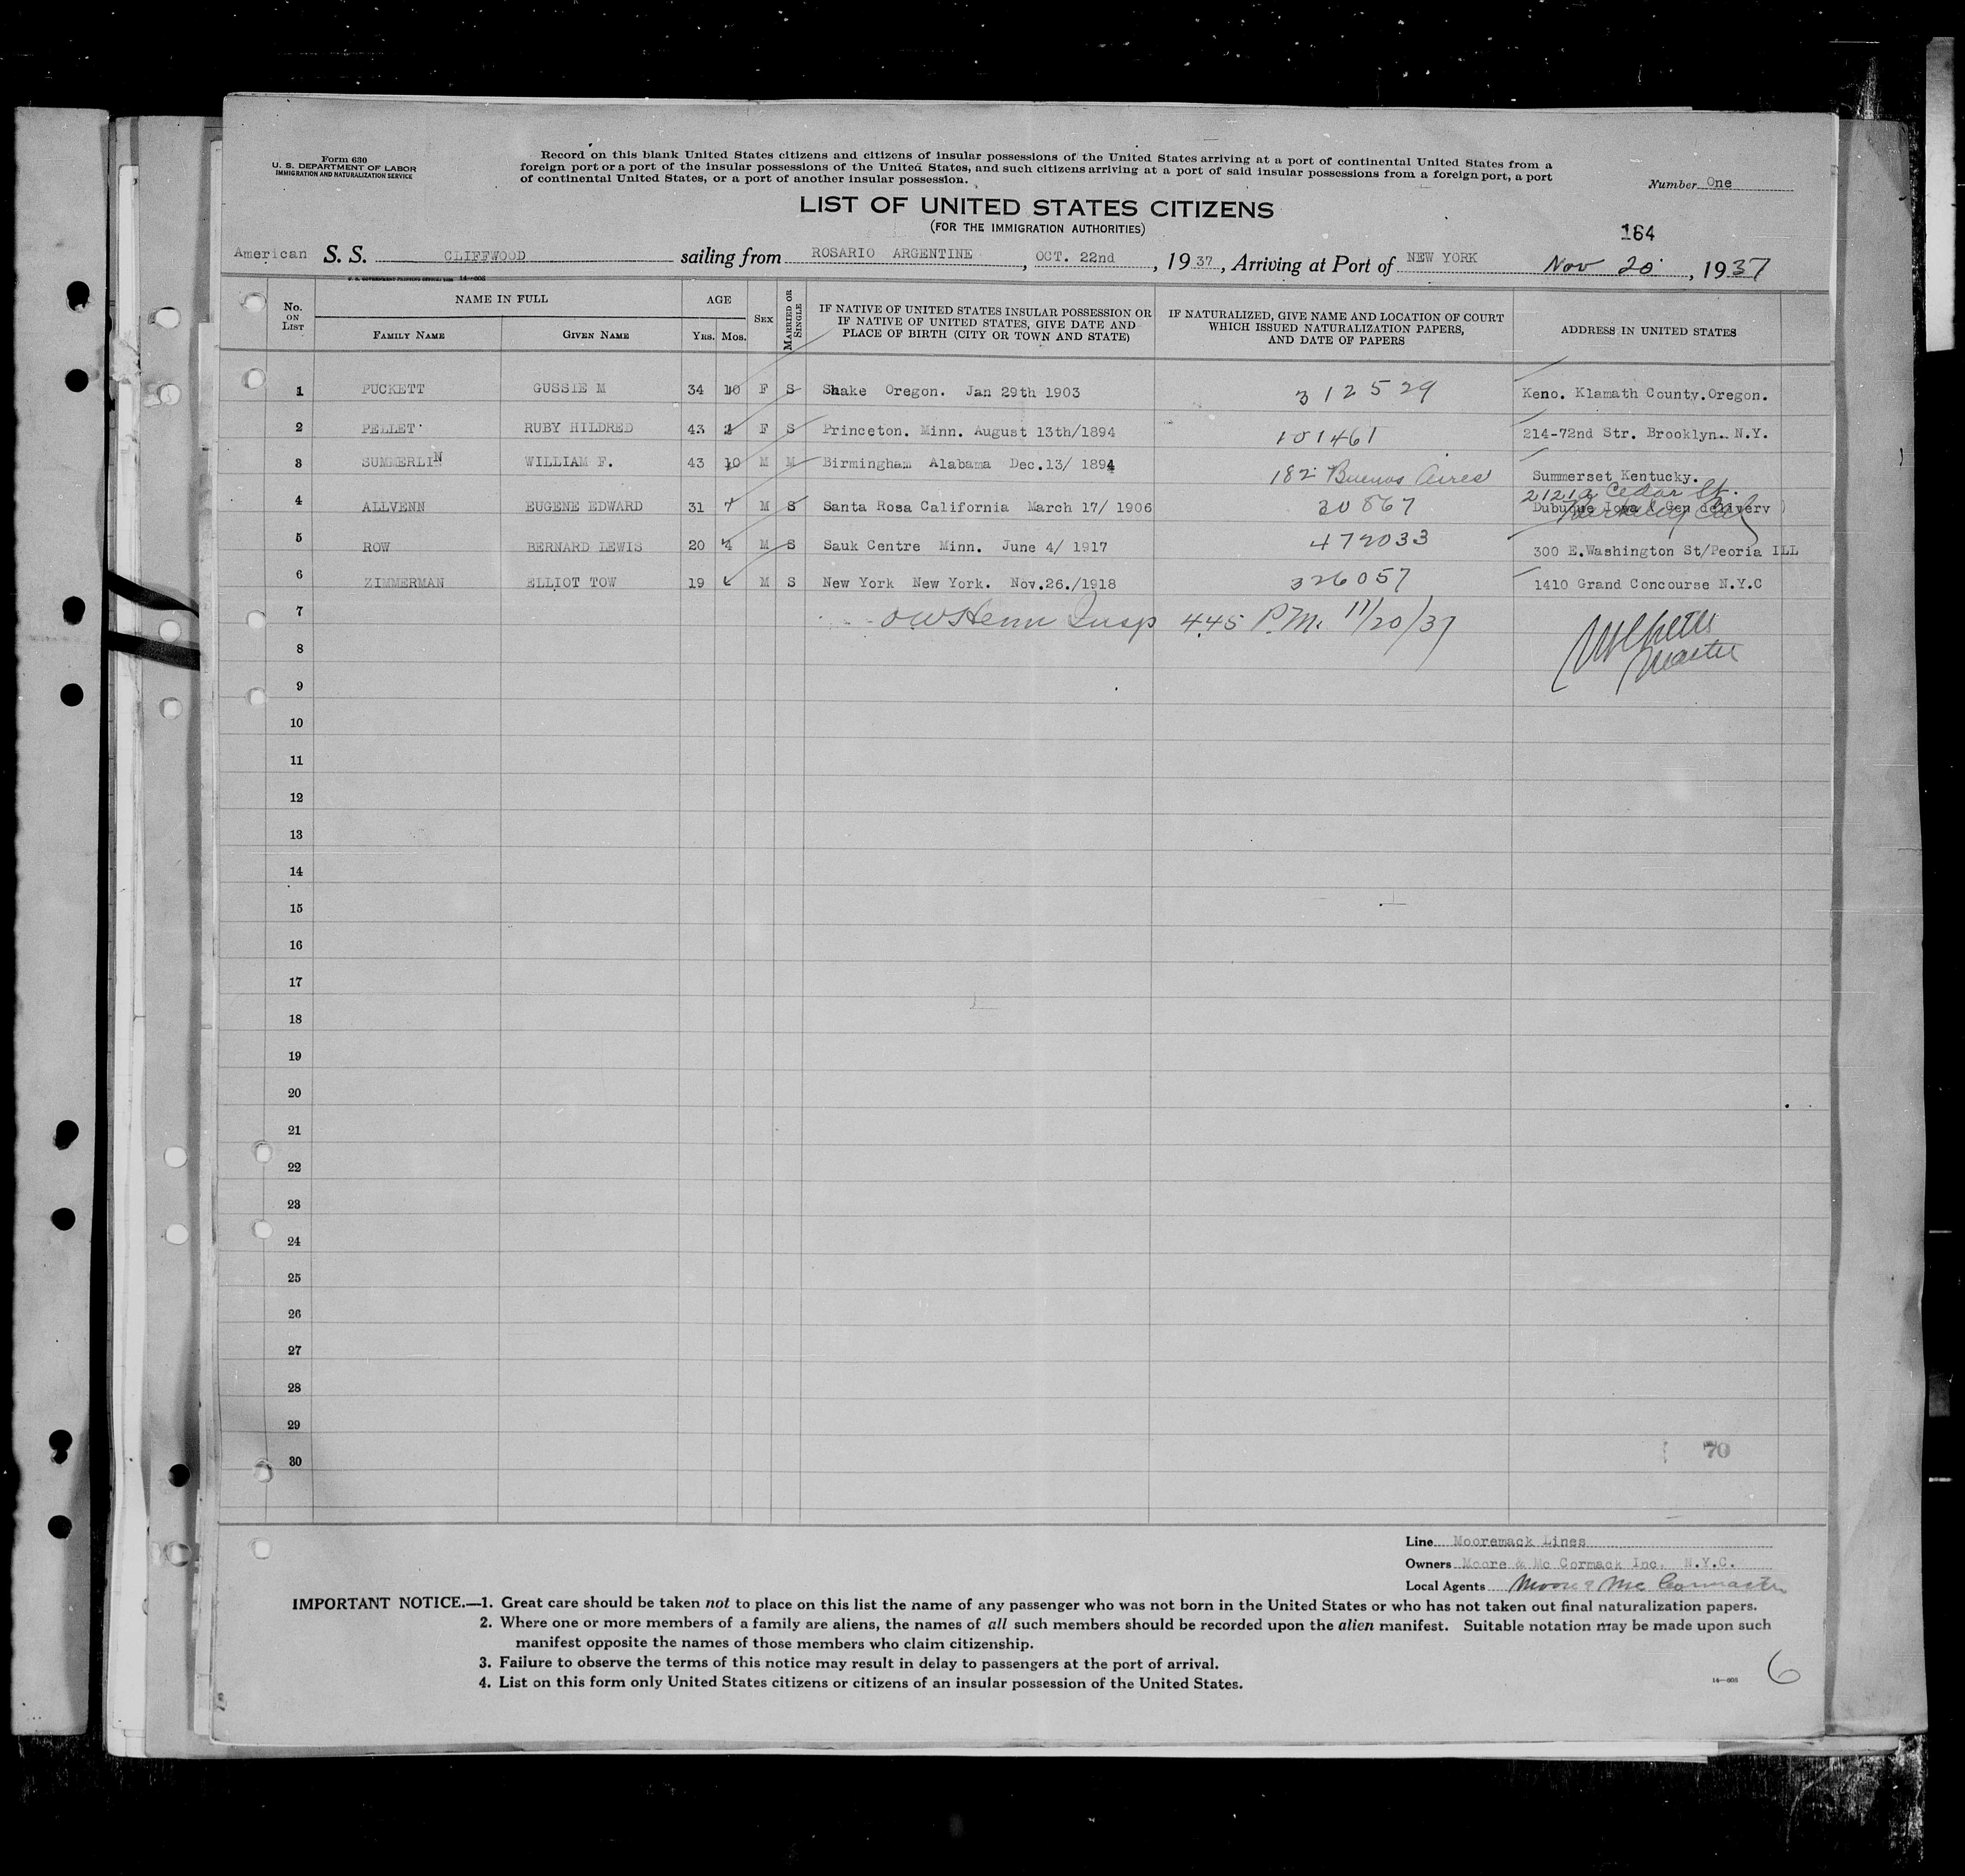 Form 630
U. S. DEPARTMENT OF LABOR
IMMIGRATION AND NATURALIZATION SERVICE
Record on this blank United States citizens and citizens of insular possessions of the United States arriving at a port of continental United States from a
foreign port or a port of the insular possessions of the United States, and such citizens arriving at a port of said insular possessions from a foreign port, a port
of continental United States, or a port of another insular possession.
Number One
LIST OF UNITED STATES CITIZENS
(FOR THE IMMIGRATION AUTHORITIES)
164
American S. S. CLIFFWOOD sailing from ROSARIO ARGENTINE, OCT. 22nd, 1937, Arriving at Port of NEW YORK Nov 20, 1937
No. ON LIST NAME IN FULL AGE SEX MARRIED OR SINGLE IF NATIVE OF UNITED STATES INSULAR POSSESSION OR IF NATIVE OF UNITED STATES, GIVE DATE AND PLACE OF BIRTH (CITY OR TOWN AND STATE) IF NATURALIZED, GIVE NAME AND LOCATION OF COURT WHICH ISSUED NATURALIZATION PAPERS, AND DATE OF PAPERS ADDRESS IN UNITED STATES
FAMILY NAME GIVEN NAME YRS. MOS.
1 PUCKETT GUSSIE M 34 10 F S Shake Oregon. Jan 29th 1903 312529 Keno. Klamath County.Oregon.
2 PELLET RUBY HILDRED 43 F S Princeton. Minn. August 13th/1894 101461 214-72nd Str. Brooklyn. N.Y.
3 SUMMERLIN WILLIAM F. 43 10 M M Birmingham Alabama Dec.13/ 1894 182 Buenos Aires Summerset Kentucky.
2121a Cedar St.
4 ALLVENN EUGENE EDWARD 31 7 M S Santa Rosa California March 17/ 1906 30867 Dubuque Iowa ( Gen delivery )
Berkeley Cal
5 ROW BERNARD LEWIS 20 4 M S Sauk Centre Minn. June 4/ 1917 472033 300 E.Washington St/Peoria ILL
6 ZIMMERMAN ELLIOT TOW 19 M S New York New York. Nov.26./1918 326057 1410 Grand Concourse N.Y.C
7 Insp 445 P.M. 11/20/37
Master
8
9
10
11
12
13
14
15
16
17
18
19
20
21
22
23
24
25
26
27
28
29
70
30
Line Mooremack Lines
Owners Moore & Mc Cormack Inc. N.Y.C.
Local Agents Moore & Mc Cormack
IMPORTANT NOTICE.—1. Great care should be taken not to place on this list the name of any passenger who was not born in the United States or who has not taken out final naturalization papers.
2. Where one or more members of a family are aliens, the names of all such members should be recorded upon the alien manifest. Suitable notation may be made upon such
manifest opposite the names of those members who claim citizenship.
3. Failure to observe the terms of this notice may result in delay to passengers at the port of arrival.
4. List on this form only United States citizens or citizens of an insular possession of the United States.
6